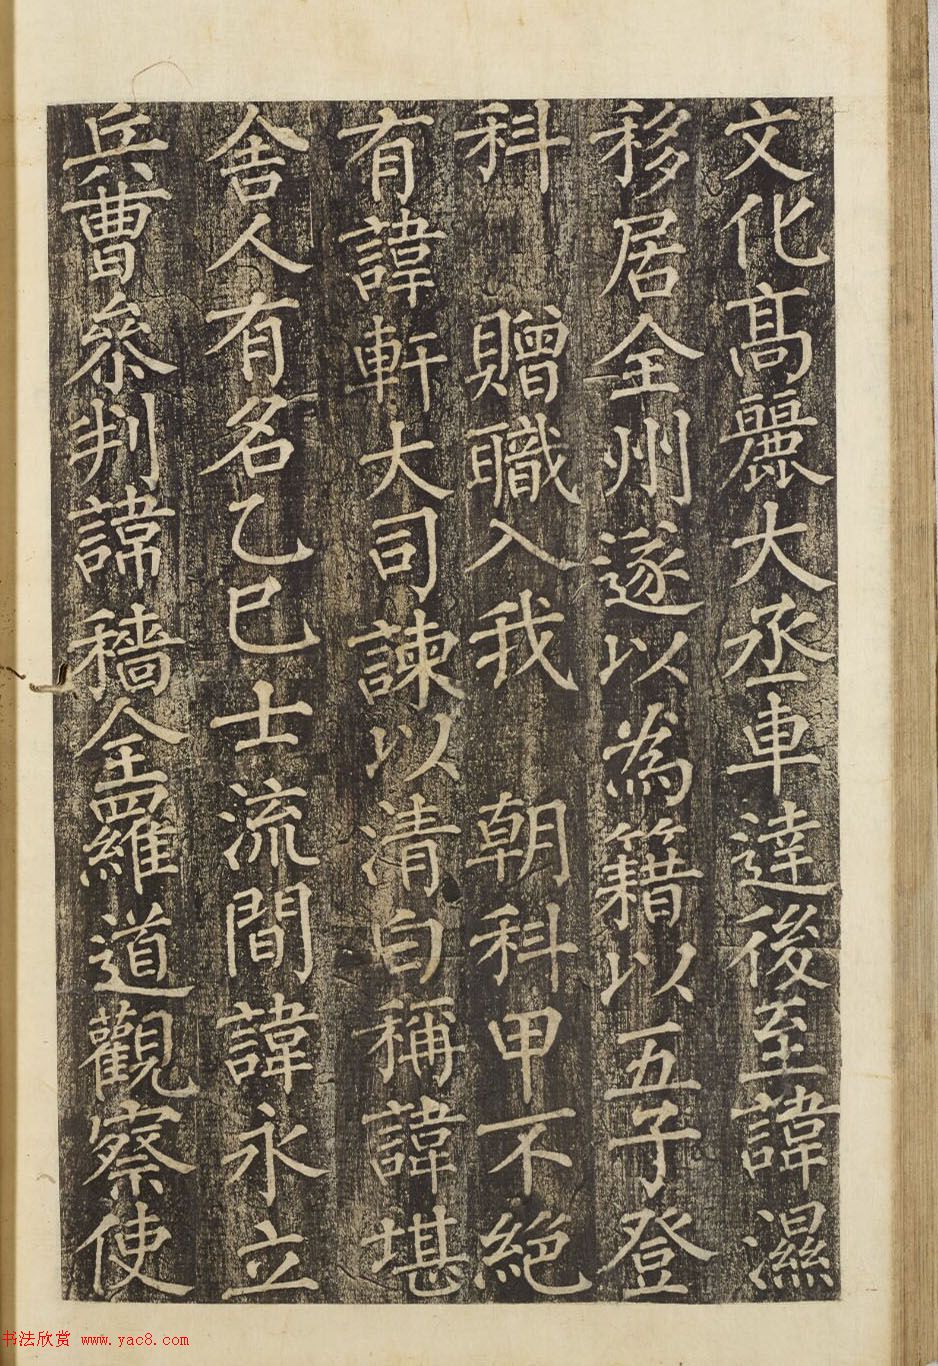 文化高麗大丞車達後至諱濕
移居全州遂以為籍以五子登
科 贈職入我 朝科甲不絕
有諱軒大司諫以清白稱諱堪
舍人有名乙巳士流間諱永立
兵曹叅判諱穡全羅道觀察使
书法欣赏 www.yac8.com